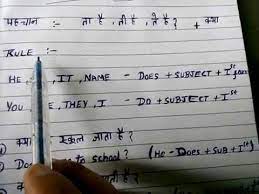 पहचान :- ता है, ती है, ते है? + क्या
RULE :-
HE , IT, NAME - DOES + SUBJECT + Ist
YOU , THEY, I - DO + SUBJECT + Ist
① क्या स्कूल जाता है?
② Do to school? (He - Does + SUB + Ist
क्या है?